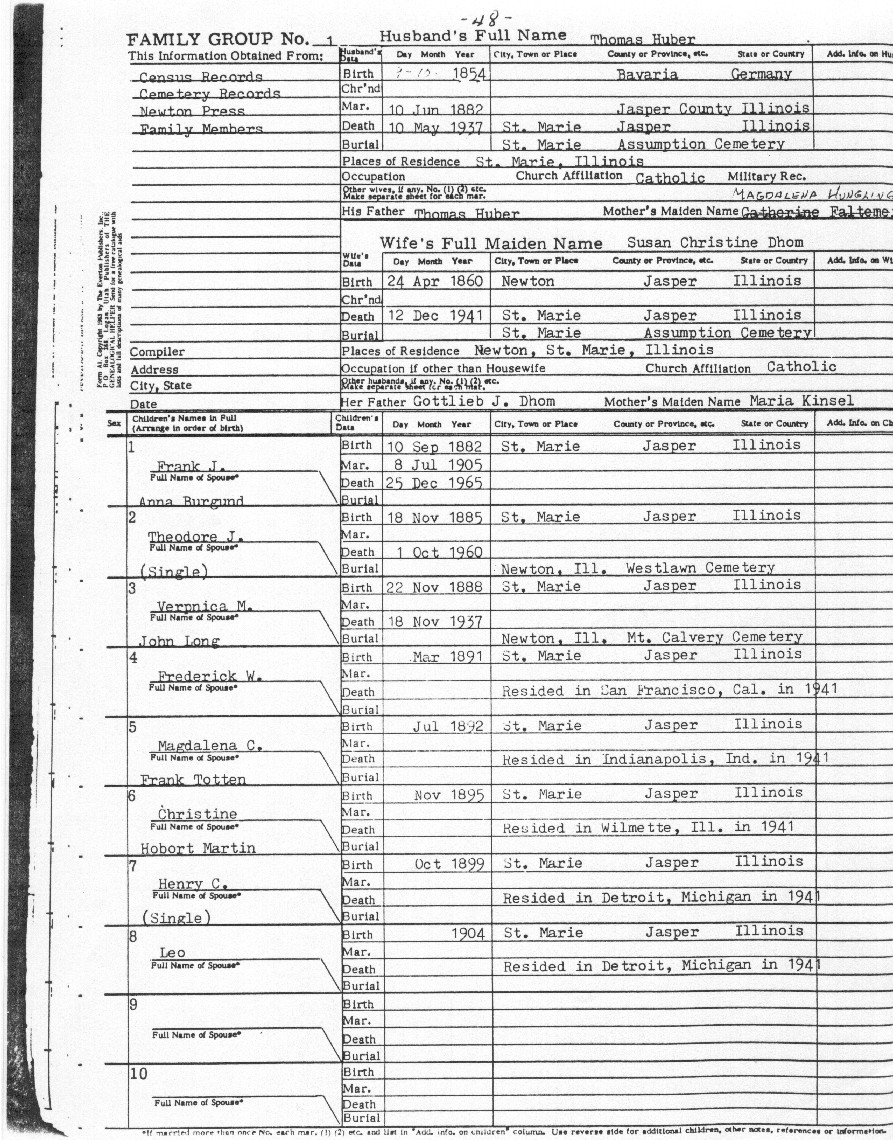 -48-
FAMILY GROUP No. 1 Husband's Full Name Thomas Huber
This Information Obtained From: Husband's Data Day Month Year City, Town or Place County or Province, etc. State or Country Add. Info. on
Census Records Birth 1854 Bavaria Germany
Cemetery Records Chr'nd
Newton Press Mar. 10 Jun 1882 Jasper County Illinois
Family Members Death 10 May 1937 St. Marie Jasper Illinois
Burial St. Marie Assumption Cemetery
Places of Residence St. Marie, Illinois
Occupation Church Affiliation Catholic Military Rec.
Other wives, if any. No. (1) (2) etc.
Make separate sheet for each mar. MAGDALENA HUNGLING
His Father Thomas Huber Mother's Maiden Name Catherine Falteme
Wife's Full Maiden Name Susan Christine Dhom
Wife's Data Day Month Year City, Town or Place County or Province, etc. State or Country Add. Info. on
Birth 24 Apr 1860 Newton Jasper Illinois
Chr'nd
Death 12 Dec 1941 St. Marie Jasper Illinois
Burial St. Marie Assumption Cemetery
Form A1. Copyright 1963 by The Everton Publishers, Inc.,
P.O. Box 368, Logan, Utah Publishers of THE
GENEALOGICAL HELPER Send for a free catalogue with
lists and full descriptions of many genealogical aids
Compiler Places of Residence Newton, St. Marie, Illinois
Address Occupation if other than Housewife Church Affiliation Catholic
City, State Other husbands, if any. No. (1) (2) etc.
Make separate sheet for each mar.
Date Her Father Gottlieb J. Dhom Mother's Maiden Name Maria Kinsel
Sex Children's Names in Full
(Arrange in order of birth) Children's Data Day Month Year City, Town or Place County or Province, etc. State or Country Add. Info. on Ch
1 Birth 10 Sep 1882 St. Marie Jasper Illinois
Frank J. Mar. 8 Jul 1905
Full Name of Spouse* Death 25 Dec 1965
Anna Burgund Burial
2 Birth 18 Nov 1885 St. Marie Jasper Illinois
Theodore J. Mar.
Full Name of Spouse* Death 1 Oct 1960
(Single) Burial Newton, Ill. Westlawn Cemetery
3 Birth 22 Nov 1888 St. Marie Jasper Illinois
Verpnica M. Mar.
Full Name of Spouse* Death 18 Nov 1937
John Long Burial Newton, Ill. Mt. Calvery Cemetery
4 Birth Mar 1891 St. Marie Jasper Illinois
Frederick W. Mar.
Full Name of Spouse* Death Resided in San Francisco, Cal. in 1941
Burial
5 Birth Jul 1892 St. Marie Jasper Illinois
Magdalena C. Mar.
Full Name of Spouse* Death Resided in Indianapolis, Ind. in 1941
Frank Totten Burial
6 Birth Nov 1895 St. Marie Jasper Illinois
Christine Mar.
Full Name of Spouse* Death Resided in Wilmette, Ill. in 1941
Hobort Martin Burial
7 Birth Oct 1899 St. Marie Jasper Illinois
Henry C. Mar.
Full Name of Spouse* Death Resided in Detroit, Michigan in 1941
(Single) Burial
8 Birth 1904 St. Marie Jasper Illinois
Leo Mar.
Full Name of Spouse* Death Resided in Detroit, Michigan in 1941
Burial
9 Birth
Mar.
Full Name of Spouse* Death
Burial
10 Birth
Mar.
Full Name of Spouse* Death
Burial
*If married more than once No. each mar. (1) (2) etc. and list in "Add. info. on children" column. Use reverse side for additional children, other notes, references or information.